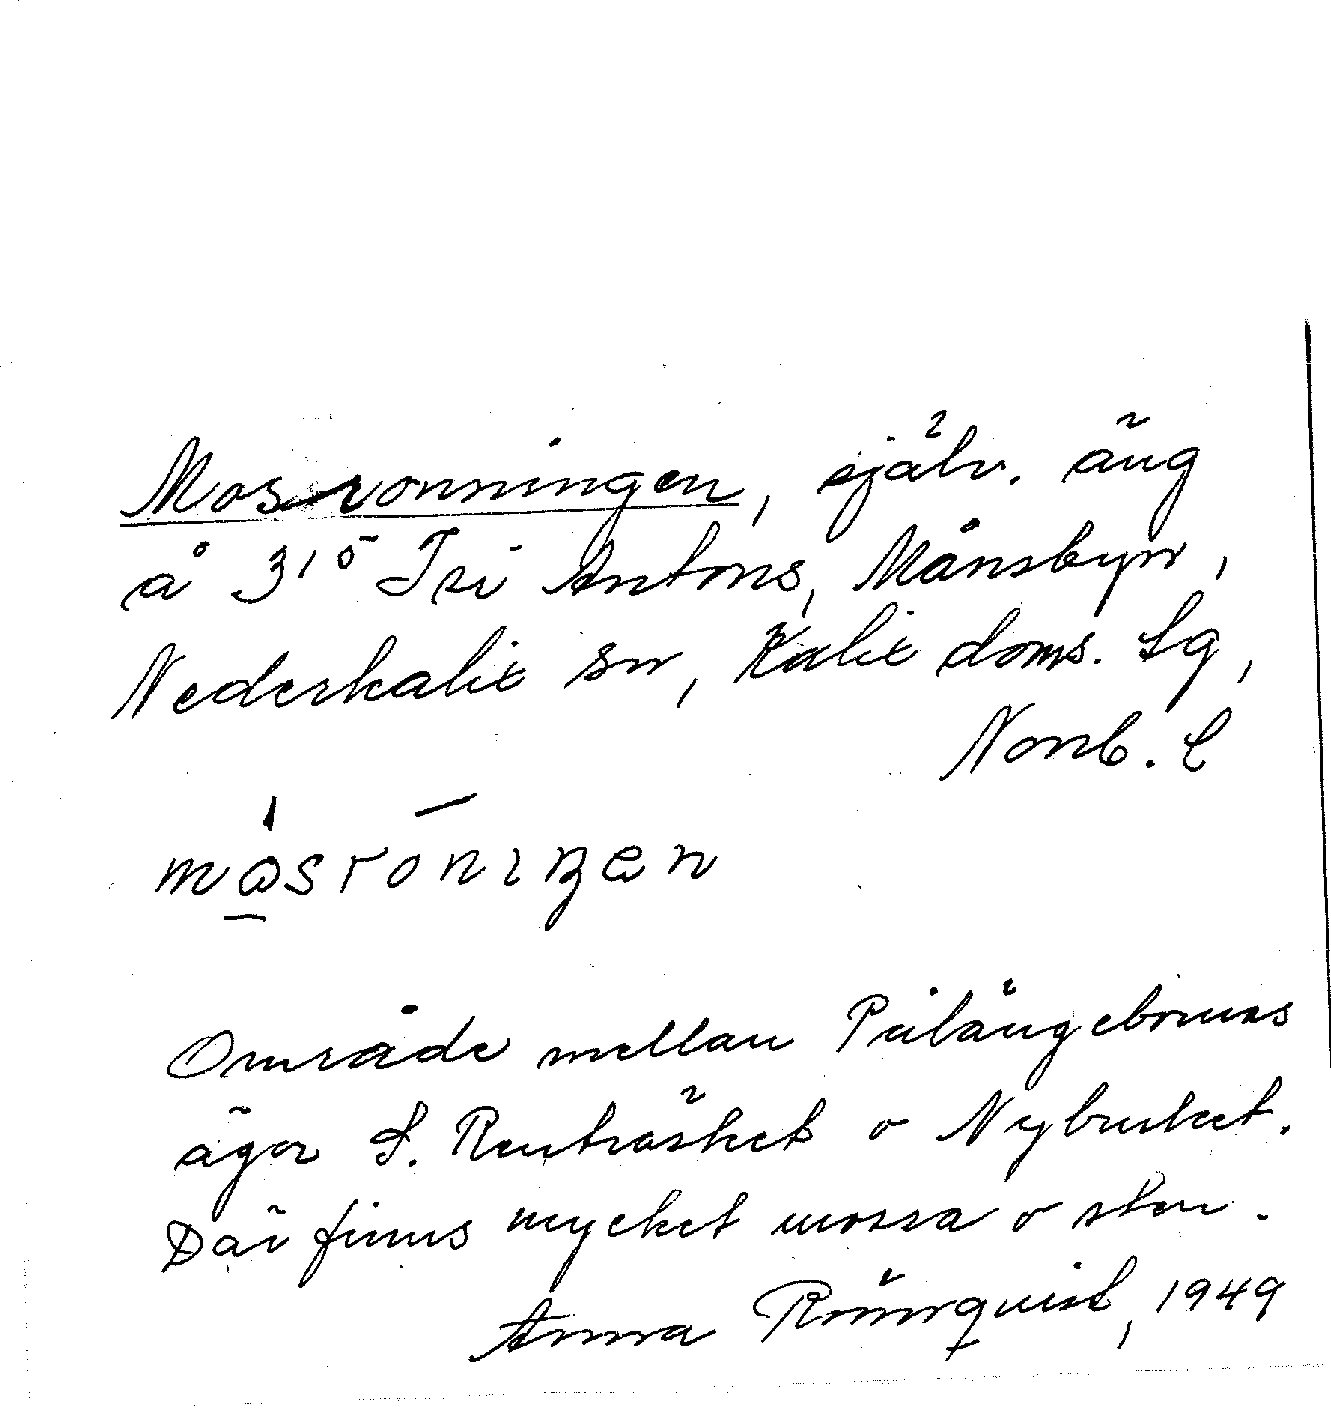 Mosronningen, själv. äng
å 3¹⁵ Isi Antons, Månsbyn,
Nederkalix sn, Kalix doms. lg,
Norrb. l
måsröniŋen
Område mellan Pålängebornas
ägor S. Renträsket o Nybruket.
Där finns mycket mossa o sten.
Anna Rönnquist, 1949